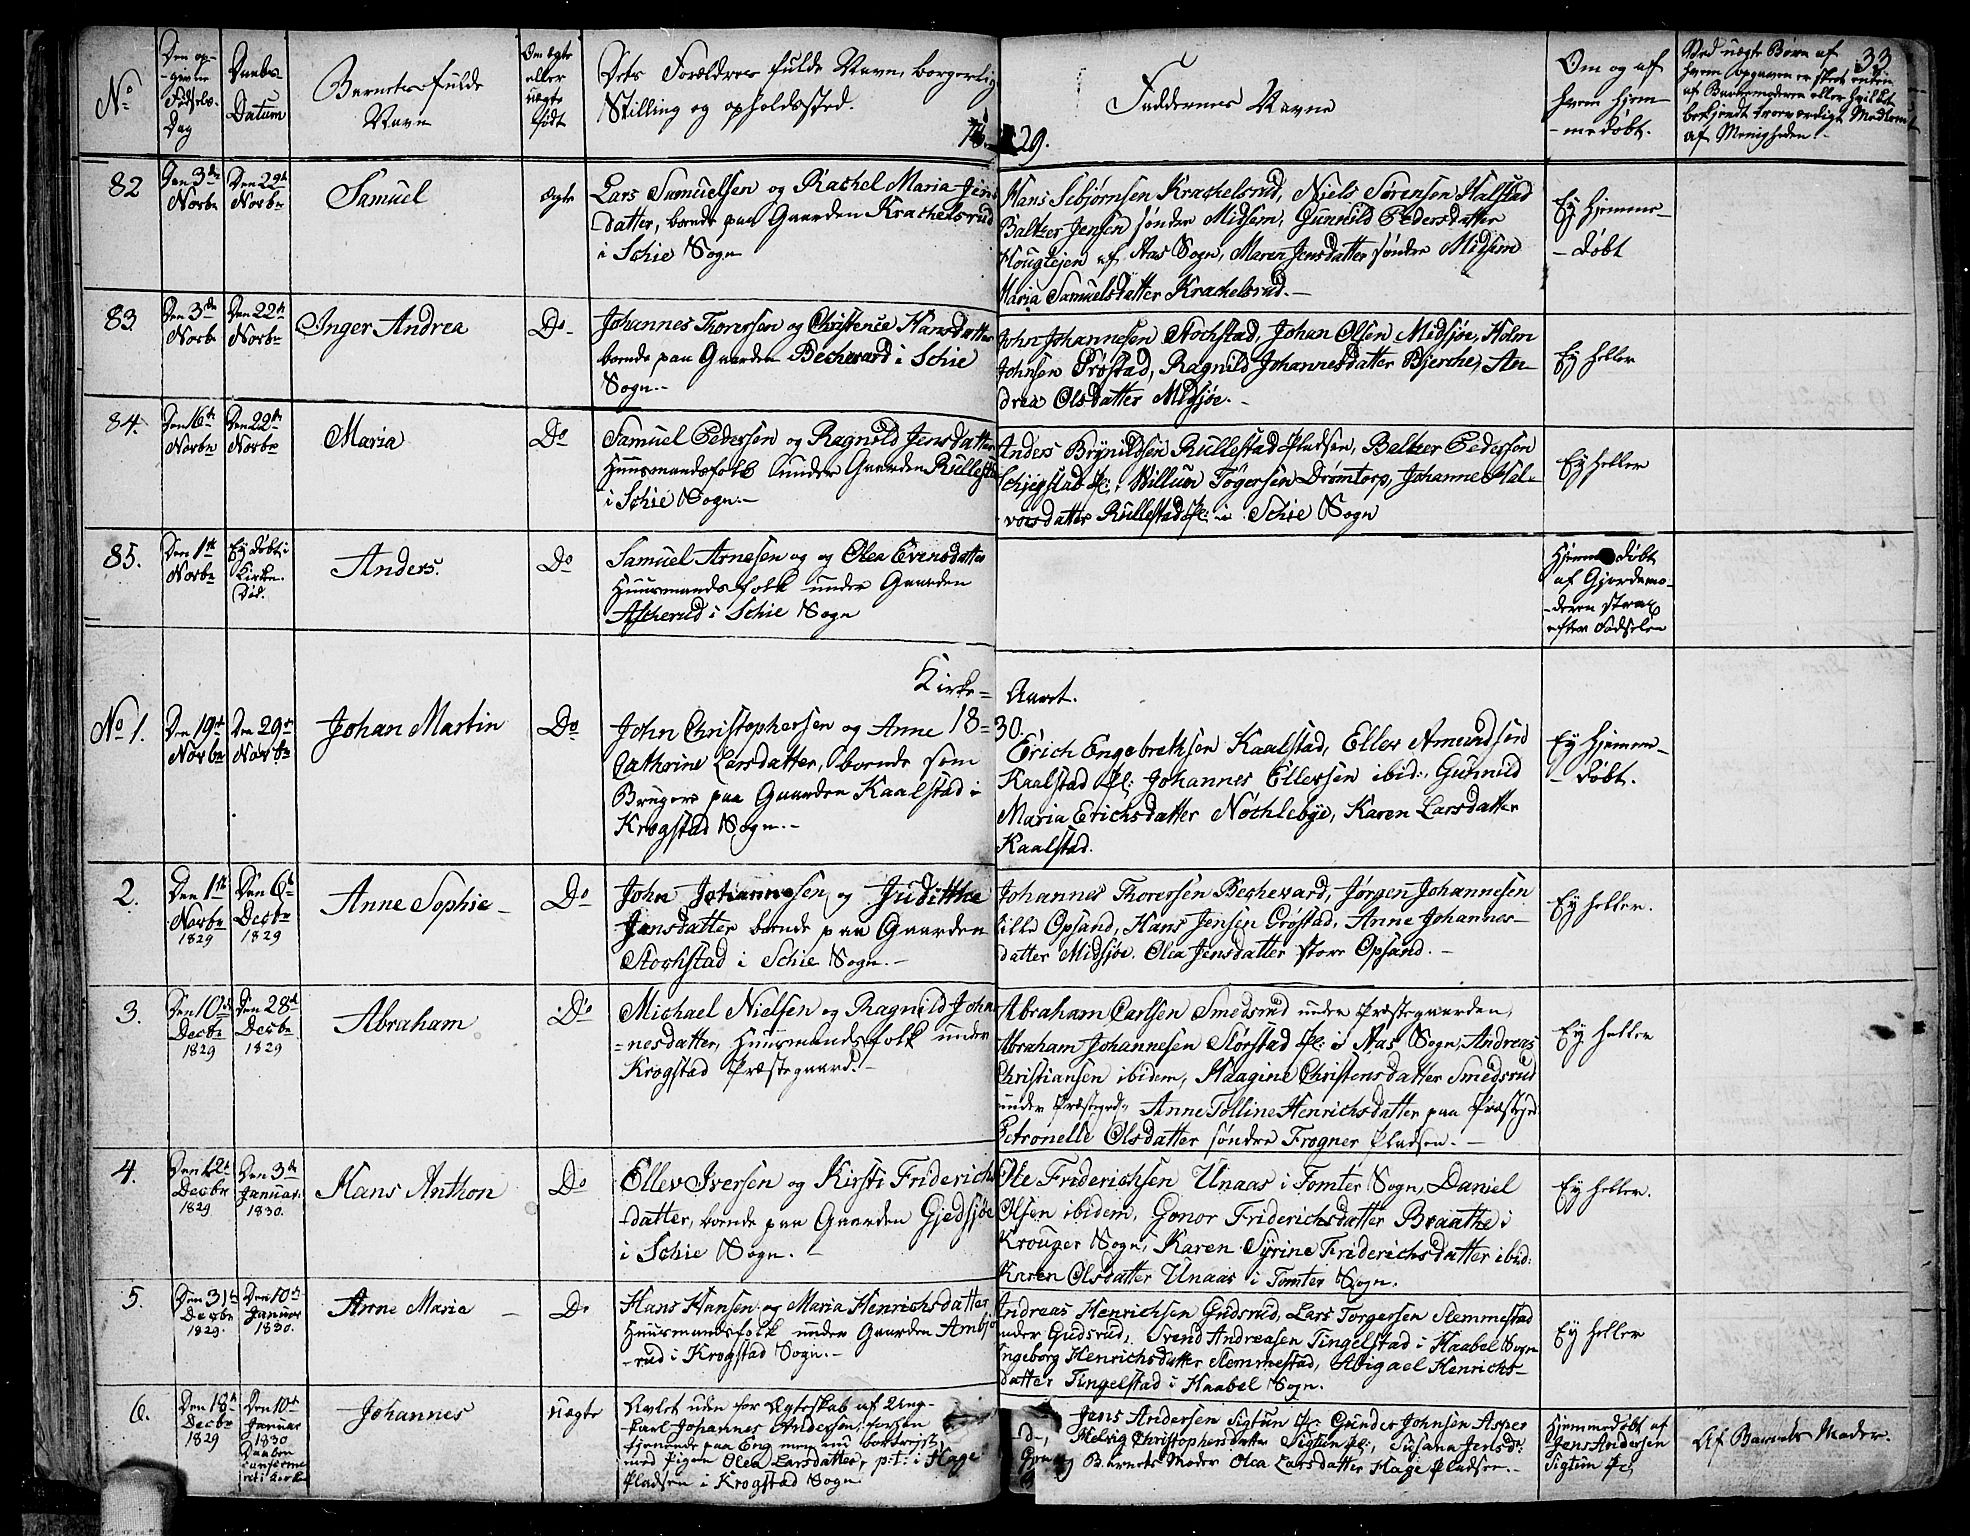 33
No
Den op-
givne
Fødsels-
Dag
Daabs-
Datum
Barnets fulde
Navn
Om ægte
eller
uægte
født
Dets Forældres fulde Navn, borgerlig
Stilling og opholdssted.
29.
Faddernes Navne
Om og af
hvem hjem-
-medøbt.
Ved uægte Børn af
hvem opgaven er skeet enten
af Barnemoderen eller hvilket
bekjendt troeværdigt Medlem
af Menigheden
82
Den 3de
Novbr
Den 22de
Novbr
Samuel
ægte
Lars Samuelsen og Rachel Maria Jens
datter, boende paa Gaarden Krachelsrud
i Schie Sogn
Hans Sebjørnsen Krachelsrud, Niels Sørensen Halstad
Baltzer Jensen søndre Midsem, Gunnild Pedersdatter
af Aas Sogn, Maren Jensdatter søndre Midsem
Maria Samuelsdatter Krachelsrud.-
Ey hjemme-
-døbt
83
Den 3de
Novbr
Den 22de
Novbr
Inger Andrea
Do-
Johannes Thoressen og Christence Hansdatter
boende paa Gaarden Bechevard i Schie
Sogn.-
John Johannesen Stochstad, Johan Olsen Midsjøe, Holm
Johnsen Prøstad, Ragnild Johannesdatter Bjerche, An-
drea Olsdatter Midsjøe.-
Ey heller
84.
Den 16de
Novbr
Den 22de
Novbr
Maria
Do
Samuel Pedersen og Ragnild Jensdatter
Huusmandsfolk under Gaarden Rullesta
i Schie Sogn.-
Anders Brynildsen Rullestad Pladsen, Baltzer Pedersen
Schjegstad Pl:, Willum Tøgersen Drømtorp, Johanne Hal-
vorsdatter Rullestad Pl: i Schie Sogn
Ey heller
85.
Den 1te
Novbr
Ey døbt i
Kirke.
Død.
Anders.
Do
Samuel Arnesen og og Olea Evensdatter
Huusmandsfolk under Gaarden
Ascherud i Schie Sogn
Hjemmedøbt
af Gjordemo-
-deren strax
efter Fødselen
Kirke-
Aaret.
18-30.
No 1.
Den 19de
Novbr
Den 29de
Novbr
Johan Martin
Do
John Christophersen og Anne
Cathrine Larsdatter, boende som
Bruger paa Gaarden Kaalstad i
Krogstad Sogn.-
Erich Engebrethsen Kaalstad, Ellev Amundsen
Kaalstad Pl: Johannes Ellevsen ibid:, Gunnild
Maria Erichsdatter Nøchlebye, Karen Larsdatter
Kaalstad.
Ey hjemme-
-døbt.
2.
Den 1te
Novbr
1829
Den 6te
Decbr
1829
Anne Sophie-
Do
John Johannesen og Jiditthe
Jensdatter boende paa Gaarden
Stochstad i Schie Sogn.-
Johannes Thoressen Bechevard, Jørgen Johannesen
lille Opsand, Hans Jensen Prøstad, Anne Johannes-
datter Midsjøe, Olea Jensdatter store Opsand.-
Ey heller.
3.
Den 10de
Decbr
1829
Den 28de
Decbr
1829
Abraham
Do
Michael Nielsen og Ragnild Johan
=nesdatter, Huusmandsfolk under
Krogstad Præstegaard.-
Abraham Carlsen Smedsrud under Præstegaarden,
Abraham Johannesen Storstad Pl: i Aas Sogn, Andreas
Christiansen ibidem, Haagine Christensdatter Smedsrud
under Præstegrd., Anne Tolline Henrichsdatter paa Præstegrd
Petronelle Olsdatter søndre Frogner Pladsen.-
Ey heller
4.
Den 12te
Decbr
1829
Den 3de
Januar.
1830.
Hans Anthon
Do
Ellev Iversen og Kirsti Friderichs
-datter, boende paa Gaarden Gjedsjøe
i Schie Sogn.-
Ole Friderichsen Unaas i Tomter Sogn, Daniel
Olsen ibidem, Gonor Friderichsdatter Braathe i
Krouger Sogn, Karen Syrine Friderichsdatter ibid:
Karen Olsdatter Unaas i Tomter Sogn.
Ey heller.
5.
Den 31te
Decbr
1829.
Den 10de
Januar
1830.
Anne Marie-
Do
Hans Hansen og Maria Henrichsdatter
Huusmandsfolk under Gaarden Ambjø
-rud i Krogstad Sogn.-
Andreas Henrichsen Gudsrud, Lars Torgersen Stemmestad
under Gudsrud, Svend Andreasen Tingelstad i Haabel Sogn
Ingeborg Henrichsdatter Stemmestad, Abigael Henrichs-
datter Tingelstad i Haabel Sogn.
Ey heller
6.
Den 18de
Decbr
1829
Den 10de
Januar
1830
Daaben
confirme
ret i Kirke
Johannes
uægte
Avlet uden for Ægteskab af Ung-
karl Johannes Andersen, forhen
tjenende paa Eng men nu bortrejst,
med Pigen Olea Larsdatter, p:t: i Hage
Pladsen i Krogstad Sogn
Jens Andersen Sigtun Pl: Gunder Johnsen Asper
Helvig Christophersdatter Sigtun Pl:, Susana Jensd:
og Barnets Moder Olea Larsdatter Hage Pladsen.-
Hjemmedøbt af
Jens Andersen
Sigtun Pl:
Af Barnets Moder.